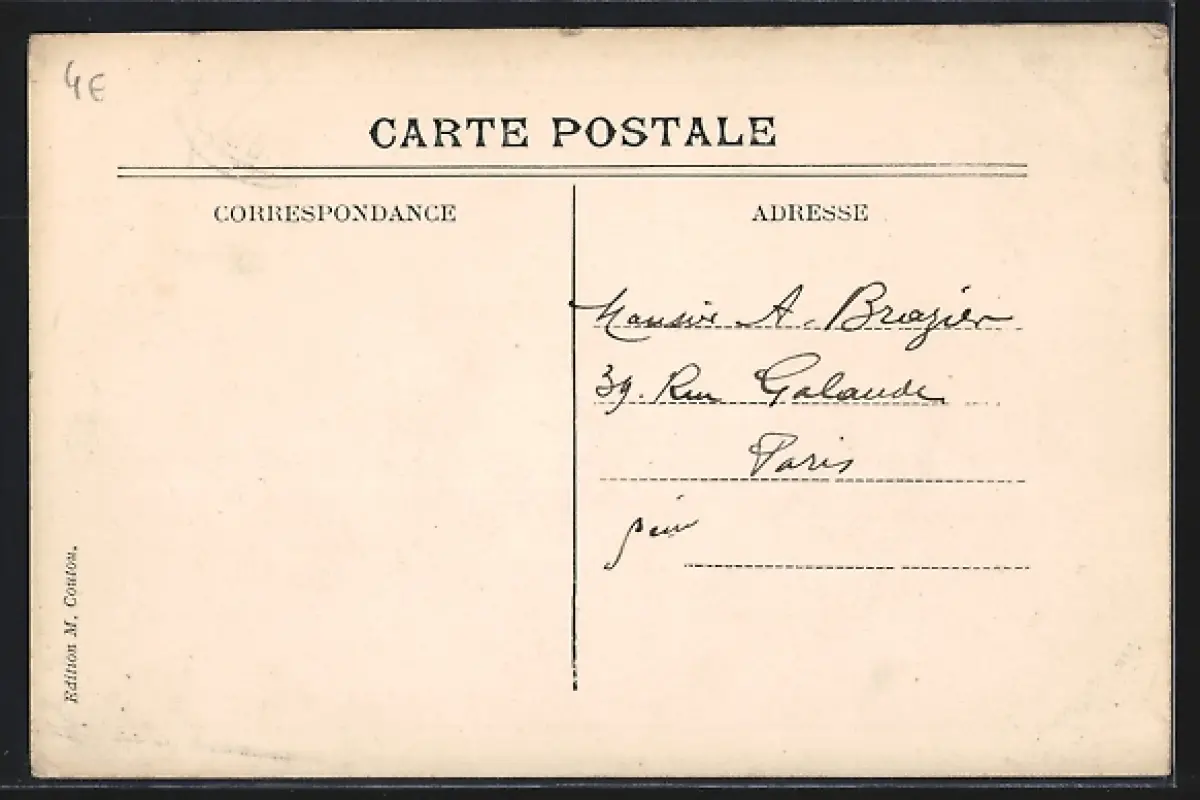 4€
CARTE POSTALE
CORRESPONDANCE
ADRESSE
Monsieur A. Brazier
39. Rue Galande
Paris
Edition M. Couton.